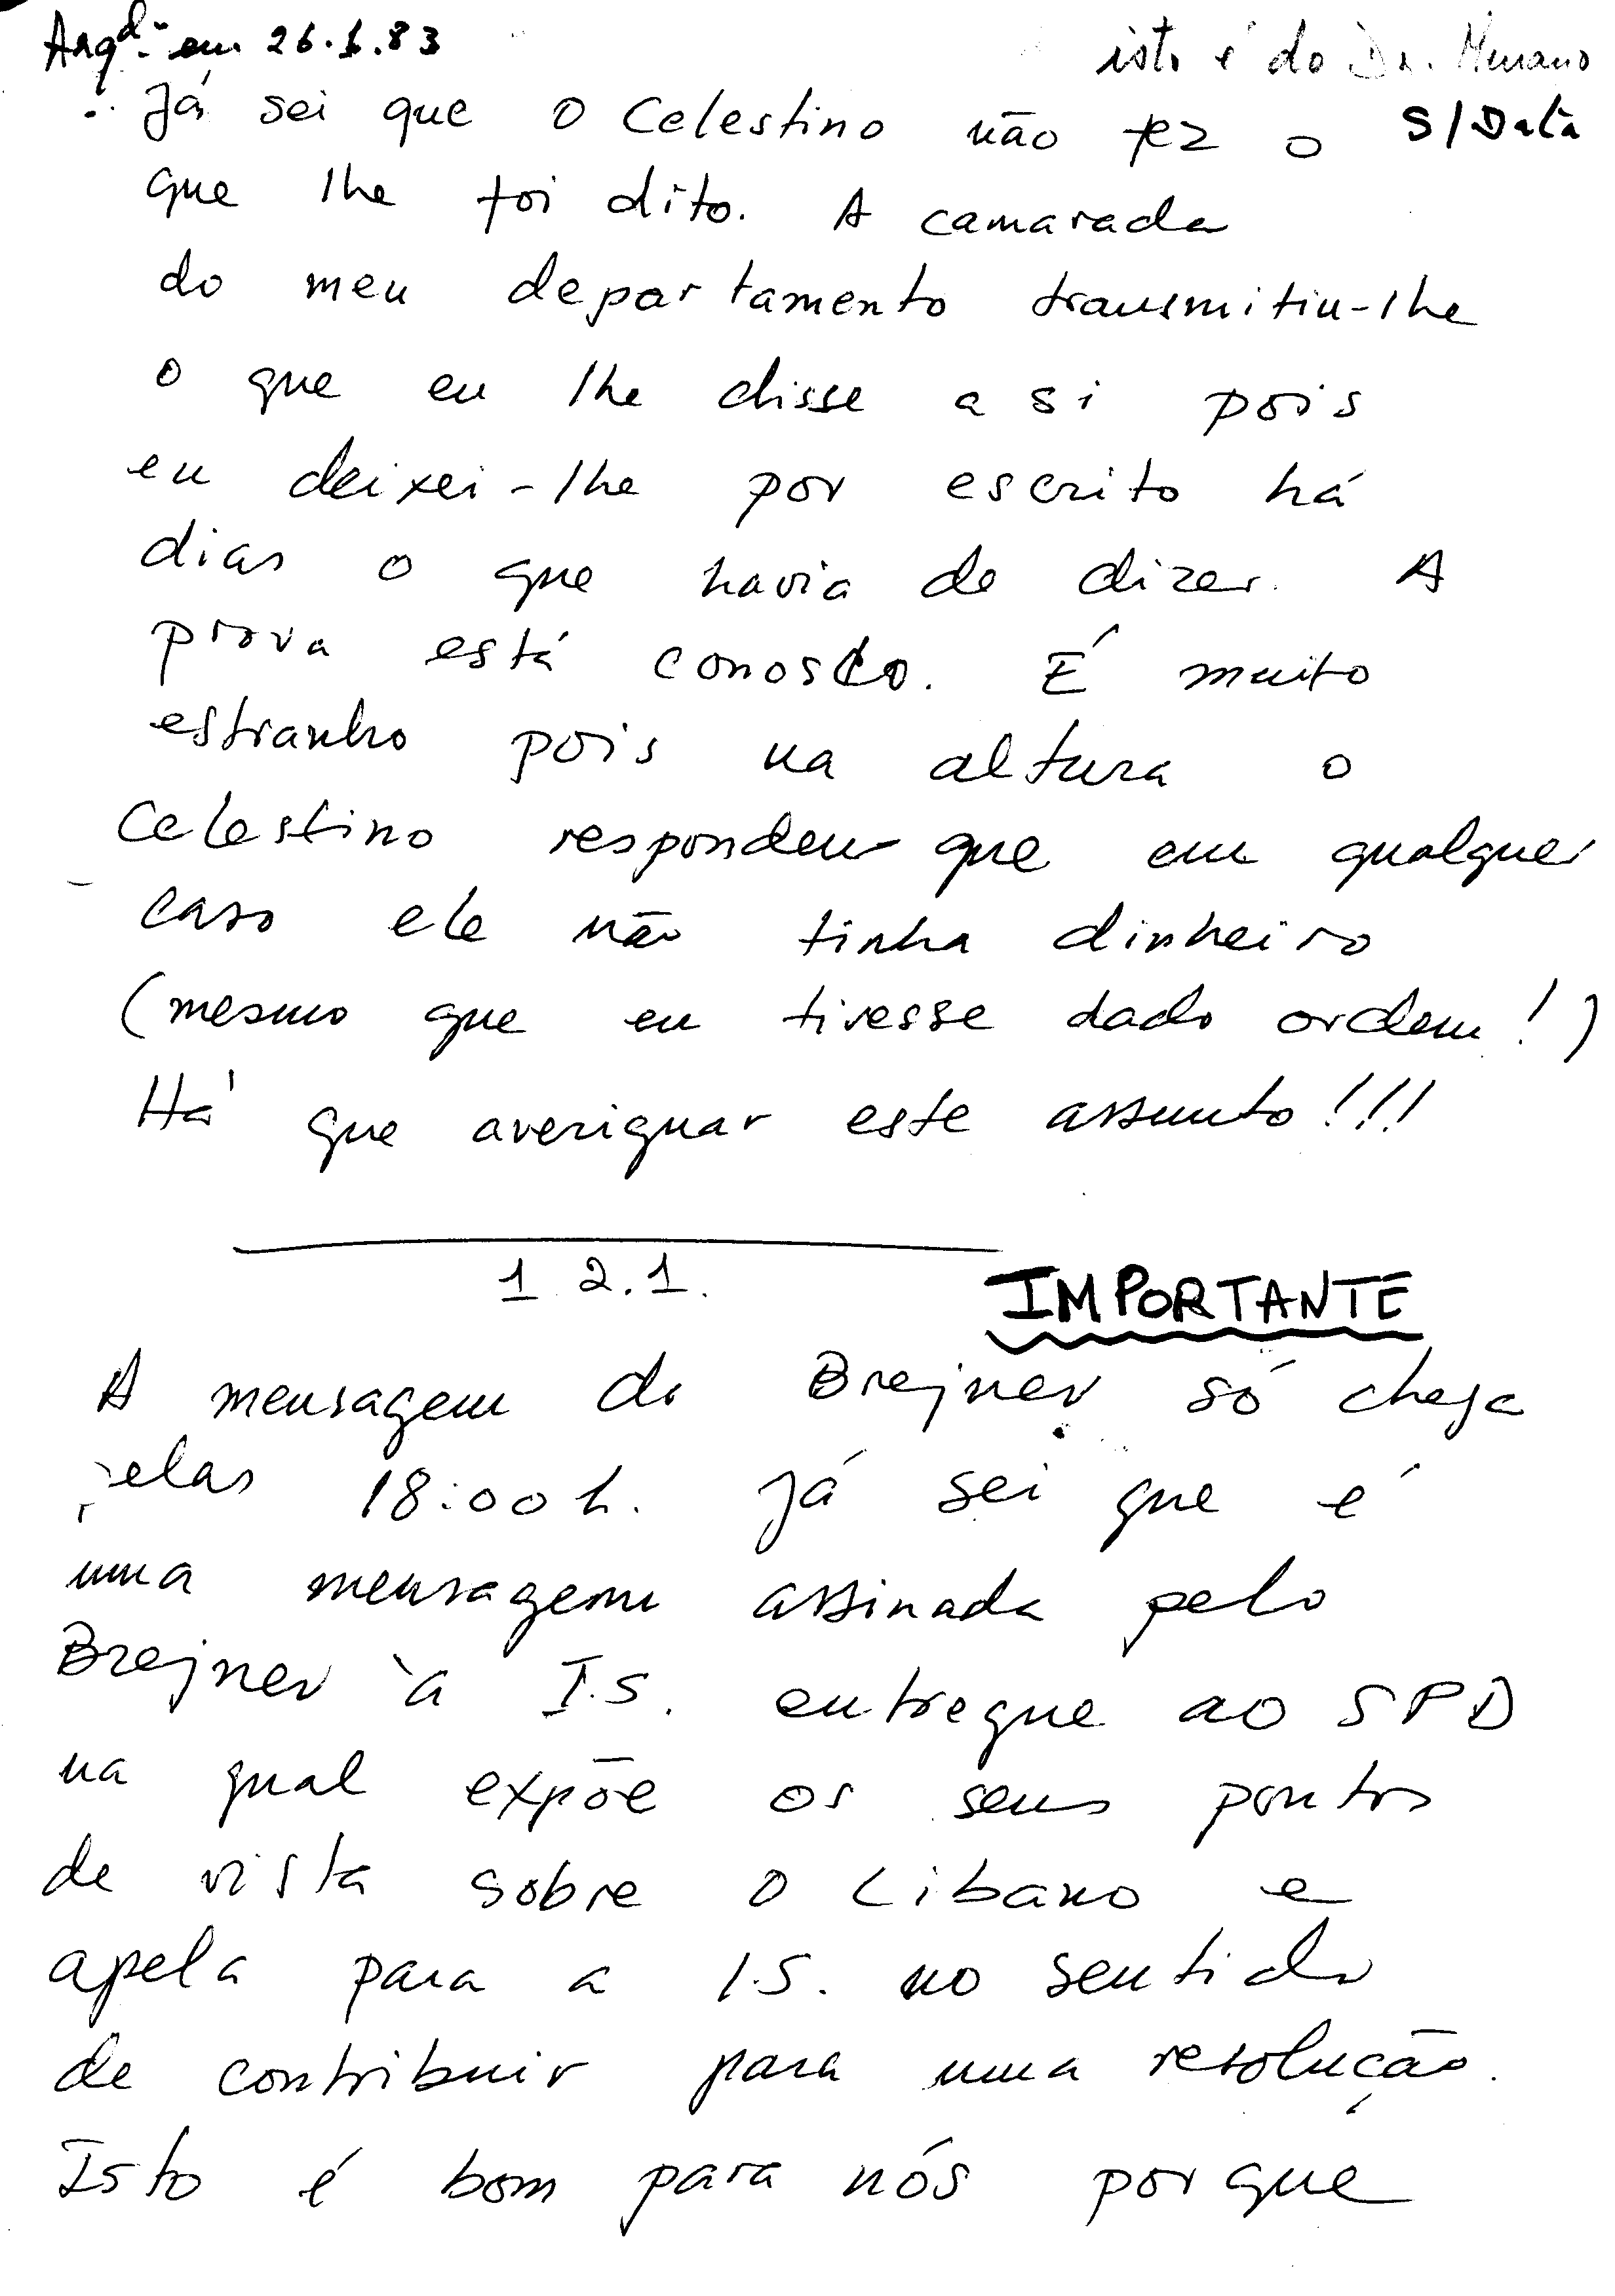 Arqd.º em 26.1.83
isto é do Dr. Murano
S/Data
Já sei que o Celestino não fez o
que lhe foi dito. A camarada
do meu departamento transmitiu-lhe
o que eu lhe disse a si pois
eu deixei-lhe por escrito há
dias o que havia de dizer. A
prova está conosco. É muito
estranho pois na altura o
Celestino respondeu que em qualquer
caso ele não tinha dinheiro
(mesmo que eu tivesse dado ordem!)
Há que averiguar este assunto!!!
1 2.1.
IMPORTANTE
A mensagem do Brejnev só chega
pelas 18:00h. Já sei que é
uma mensagem assinada pelo
Brejnev à I.S. entregue ao SPD
na qual expõe os seus pontos
de vista sobre o Libano e
apela para a I.S. no sentido
de contribuir para uma resolução.
Isto é bom para nós porque